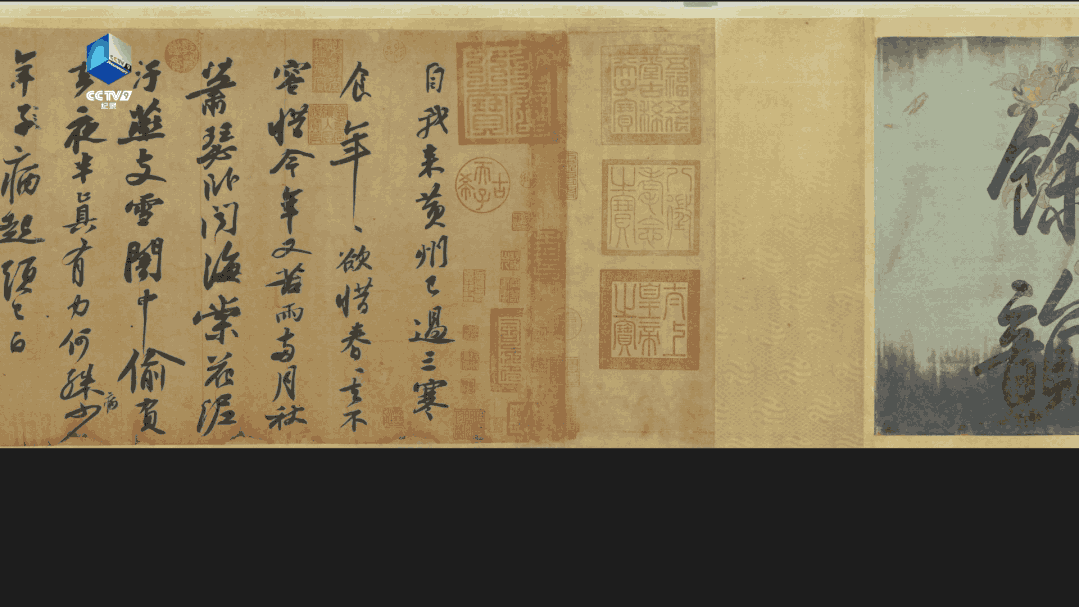 餘韻
太上皇帝之寶
八徵耄念之寶
自我来黄州已過三寒
食年、欲惜春、去不
容惜今年又苦雨兩月秋
蕭瑟卧聞海棠花泥
汙燕支雪闇中偷負
去夜半真有力何殊少
病
年子病起頭已白
CCTV9
纪录